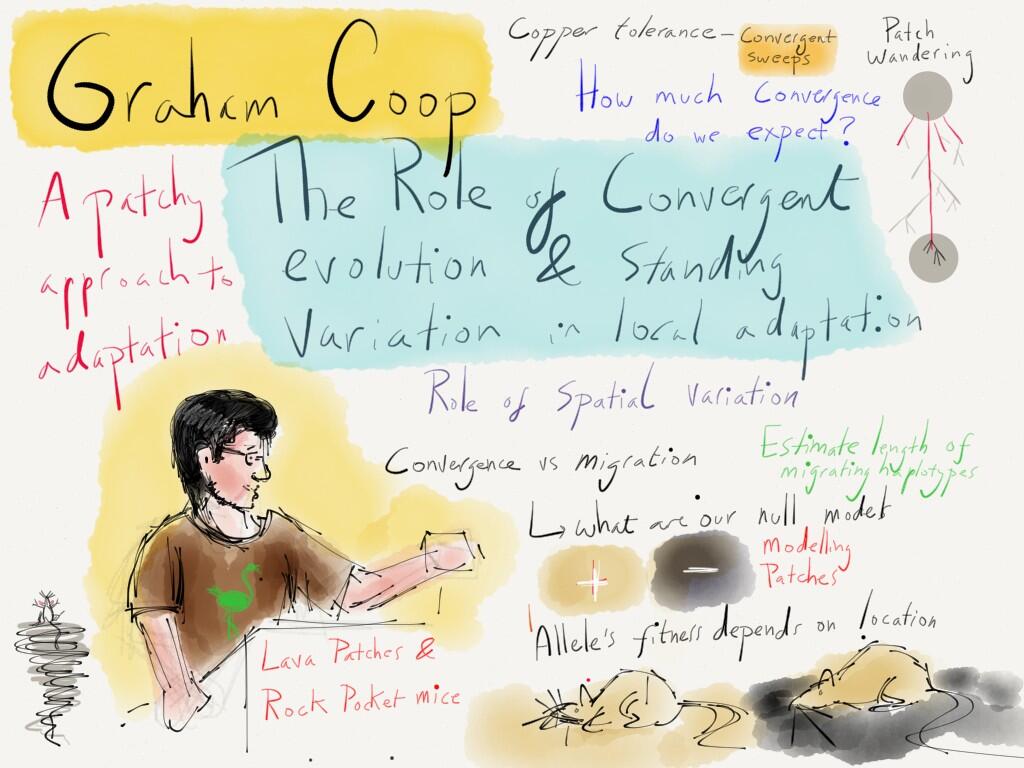 Graham Coop
Copper tolerance – Convergent
sweeps
Patch
Wandering
How much Convergence
do we expect?
A patchy
approach to
adaptation
The Role of Convergent
evolution & Standing
Variation in local adaptation
Role of Spatial Variation
Convergence vs migration
Estimate length of
migrating haplotypes
↳ what are our null model
+ –
Modelling
Patches
Allele's fitness depends on location
Lava Patches &
Rock Pocket mice